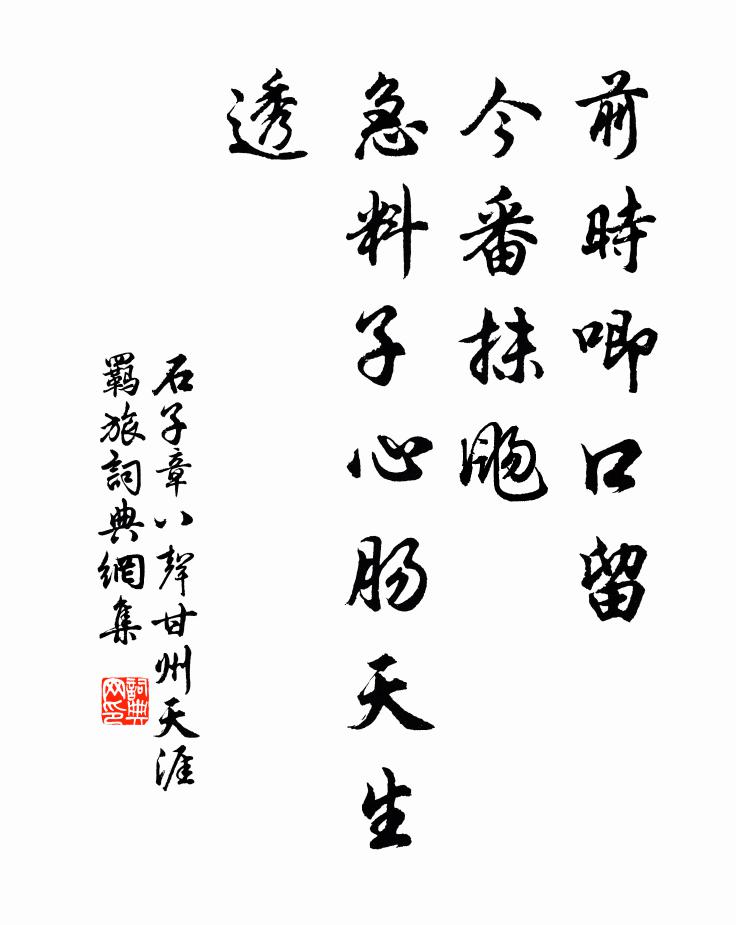 前時唧口留
今番抹颩
急料子心肠天生
透
石子章八聲甘州天涯
羇旅詞典網集
詞典網印